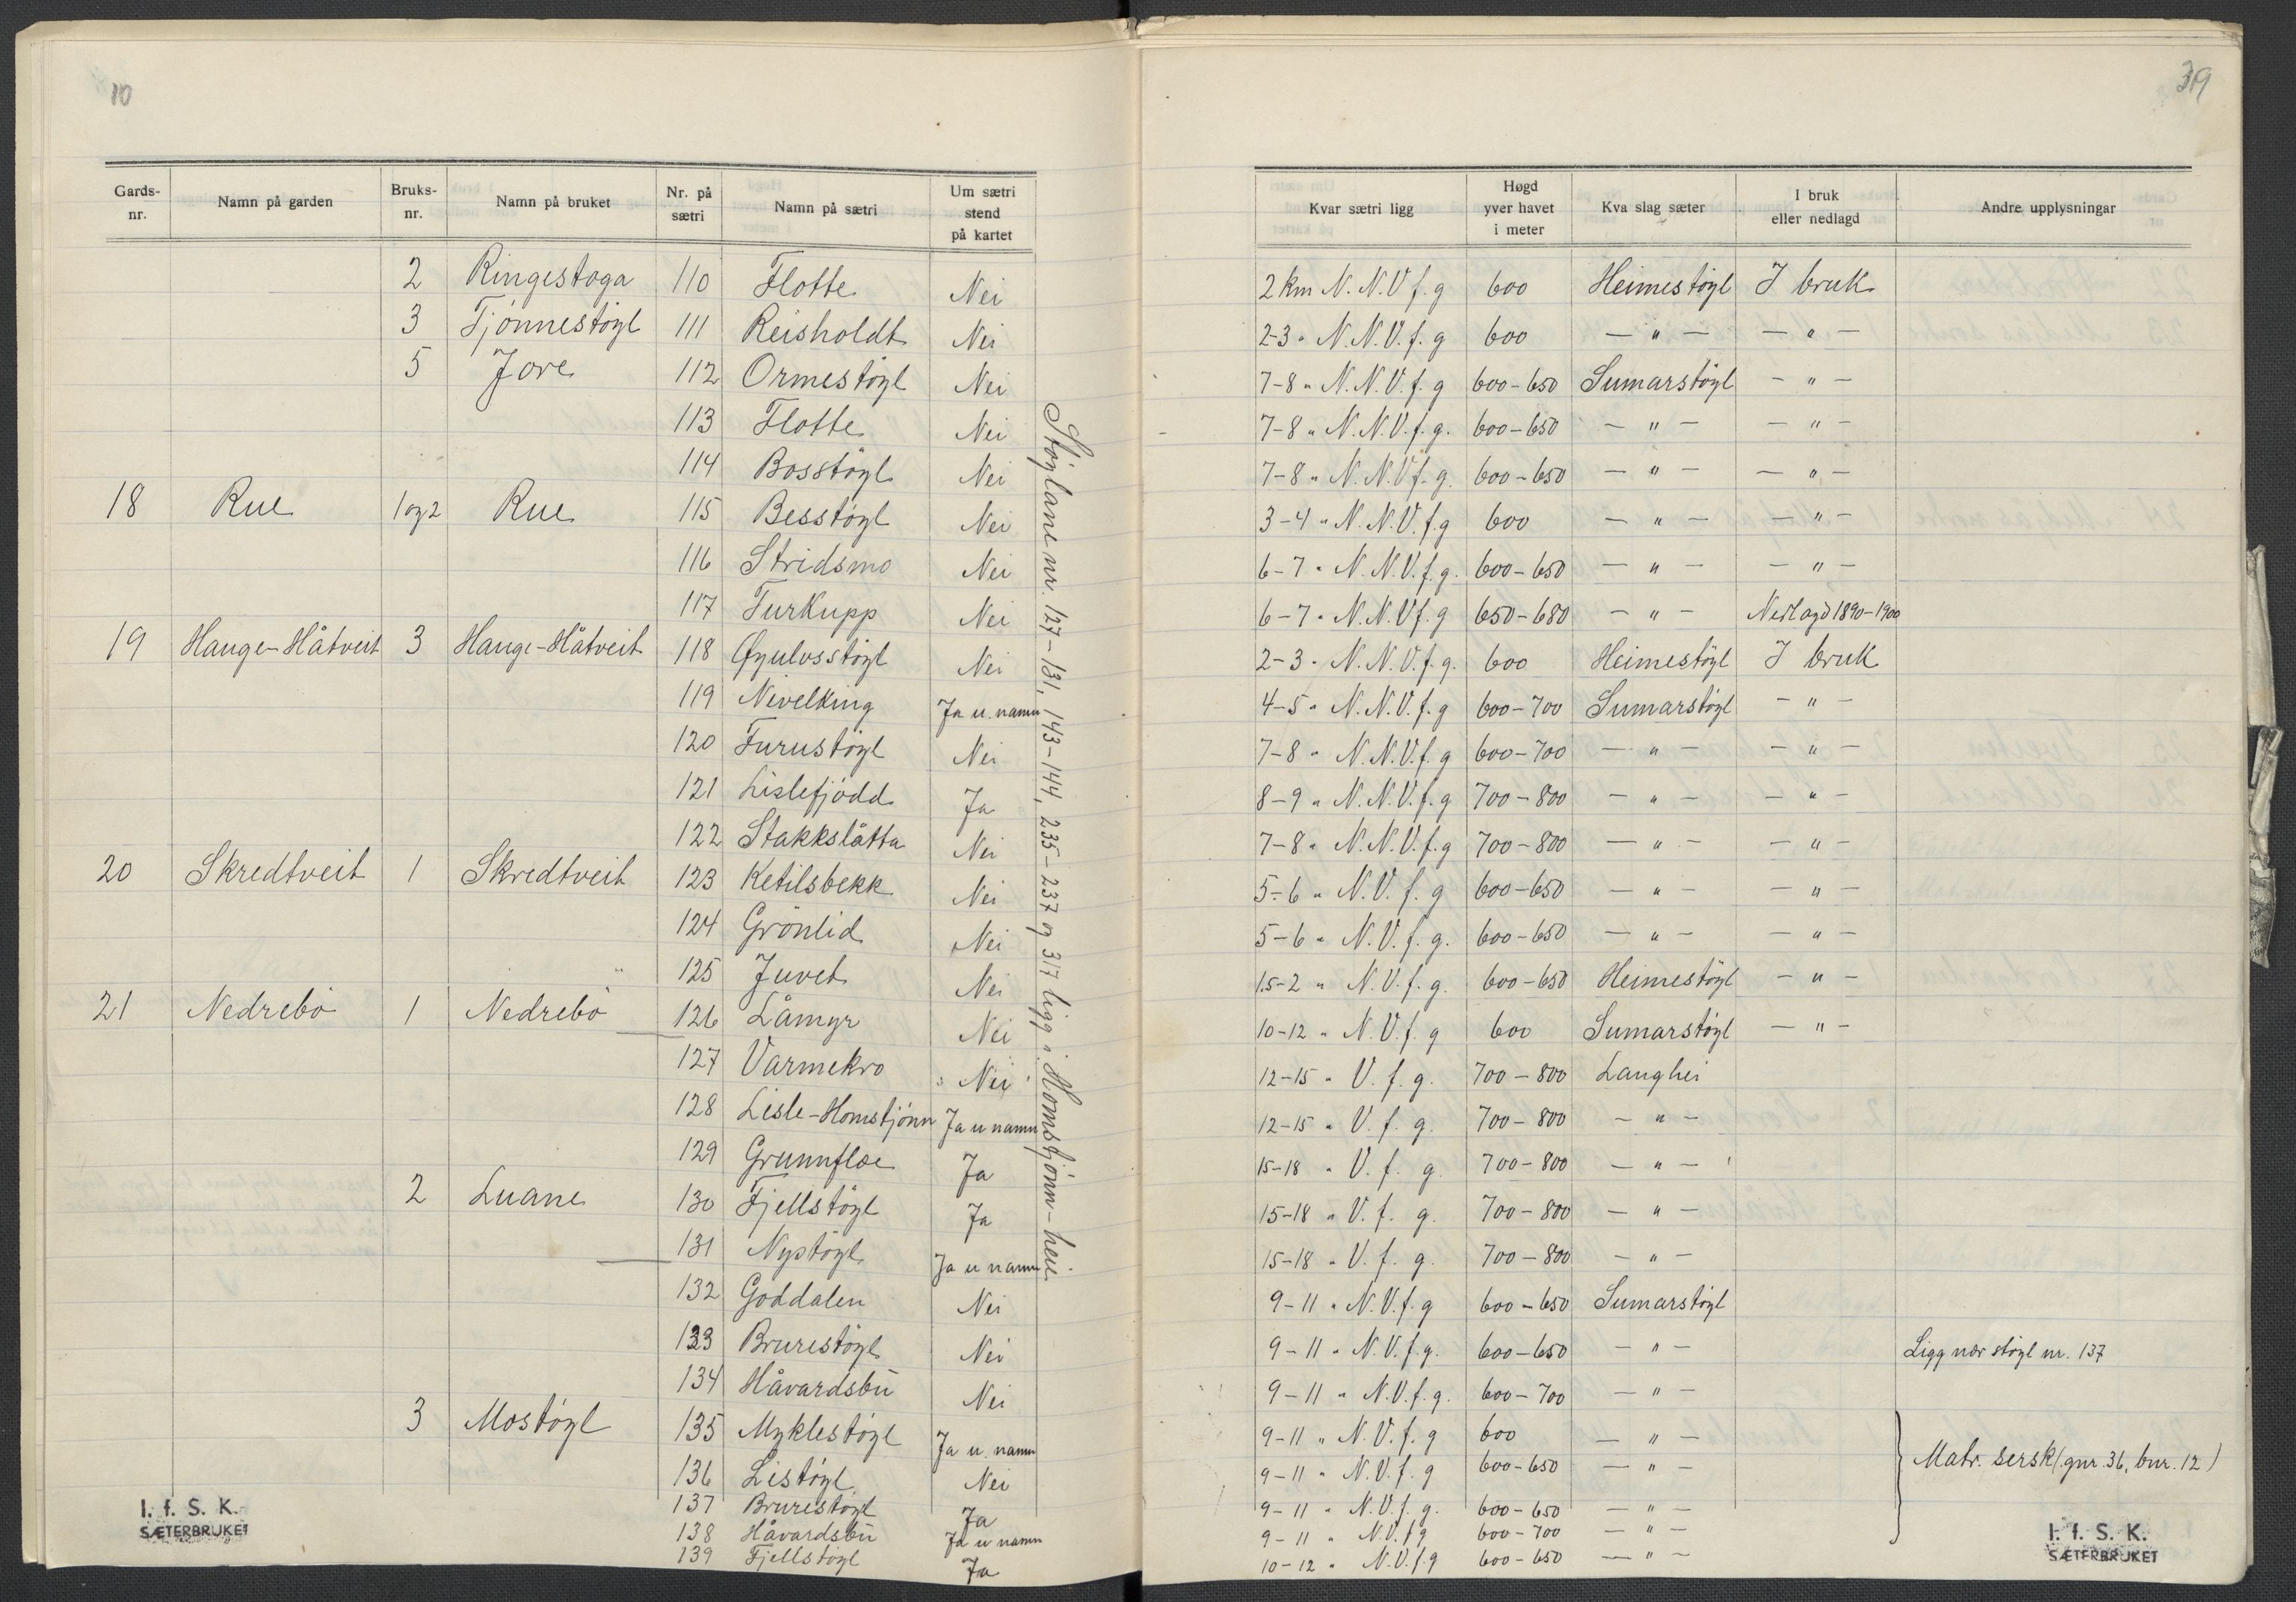 10
39
Gards-nr. | Namn på garden | Bruks-nr. | Namn på bruket | Nr. på sætri | Namn på sætri | Um sætri stend på kartet | Kvar sætri ligg | Høgd yver havet i meter | Kva slag sæter | I bruk eller nedlagd | Andre upplysningar
2 Ringestoga 110 Flotte Nei 2 km N.N.V f. g 600 Heimestöyl I bruk
3 Tjönnestöyl 111 Reisholdt Nei 2-3 " N.N.V. f. g 600 — " — — " —
5 Jore 112 Ormestöyl Nei 7-8 " N.N.V. f. g 600-650 Sumarstöyl — " —
113 Flotte Nei 7-8 " N.N.V. f. g. 600-650 — " — — " —
114 Bosstöyl Nei 7-8 " N.N.V f. g. 600-650 — " — — " —
18 Rue 1 og 2 Rue 115 Besstöyl Nei 3-4 " N.N.V. f. g 600 — " — — " —
116 Stridsmo Nei 6-7 " N.N.V. f. g. 600-650 — " — — " —
117 Turkupp Nei 6-7 " N.N.V f. g 650-680 — " — Nedlagd 1890-1900
19 Hauge-Håtveit 3 Hauge-Håtveit 118 Öyulvsstöyl Nei 2-3 " N.N.V. f. g. 600 Heimestöyl I bruk
119 Nivelking Ja u. namn 4-5 " N.N.V. f. g 600-700 Sumarstöyl — " —
120 Furustöyl Nei 7-8 " N.N.V. f. g 600-700 — " — — " —
121 Lislefjödd Ja 8-9 " N.N.V. f. g 700-800 — " — — " —
122 Stakkslåtta Nei 7-8 " N.N.V. f. g 700-800 — " — — " —
20 Skredtveit 1 Skredtveit 123 Ketilsbekk Nei 5-6 " N.V. f. g 600-650 — " — — " —
124 Grönlid Nei 5-6 " N.V. f. g. 600-650 — " — — " —
125 Juvet Nei 1.5-2 " N.V. f. g. 600-650 Heimestöyl — " —
21 Nedrebö 1 Nedrebö 126 Låmyr Nei 10-12 " N.V. f. g 600 Sumarstöyl — " —
127 Varmekro Nei 12-15 " V. f. g. 700-800 Langhei
128 Lisle-Homstjönn Ja u namn 12-15 " V. f. g. 700-800 — " —
129 Grunnfloe Ja 15-18 " V. f. g. 700-800 — " —
2 Luane 130 Fjellstöyl Ja 15-18 " V. f. g. 700-800 — " —
131 Nystöyl Ja u namn 15-18 " V. f. g. 700-800 — " —
132 Goddalen Nei 9-11 " N.V. f. g 600-650 Sumarstöyl
133 Brurestöyl Nei 9-11 " N.V. f. g. 600-650 — " — Ligg nær stöyl nr. 137
134 Håvardsbu Nei 9-11 " N.V. f. g. 600-700 — " —
3 Mostöyl 135 Myklestöyl Ja u. namn 9-11 " N.V. f. g 600 — " —
Matr. sersk. (gnr. 36, bnr. 12)
136 Listöyl Nei 9-11 " N.V. f. g 600-650 — " —
137 Brurestöyl Ja 9-11 " N.V. f. g. 600-650 — " —
138 Håvardsbu Ja u namn 9-11 " N.V. f g 600-700 — " —
139 Fjellstöyl Ja 10-12 " N.V. f. g 600-650 — " —
Stöylane nr. 127-131, 143-144, 235-237 og 317 ligg i Homstjönn-heii.
I. f. S. K.
SÆTERBRUKET
I. f. S. K.
SÆTERBRUKET